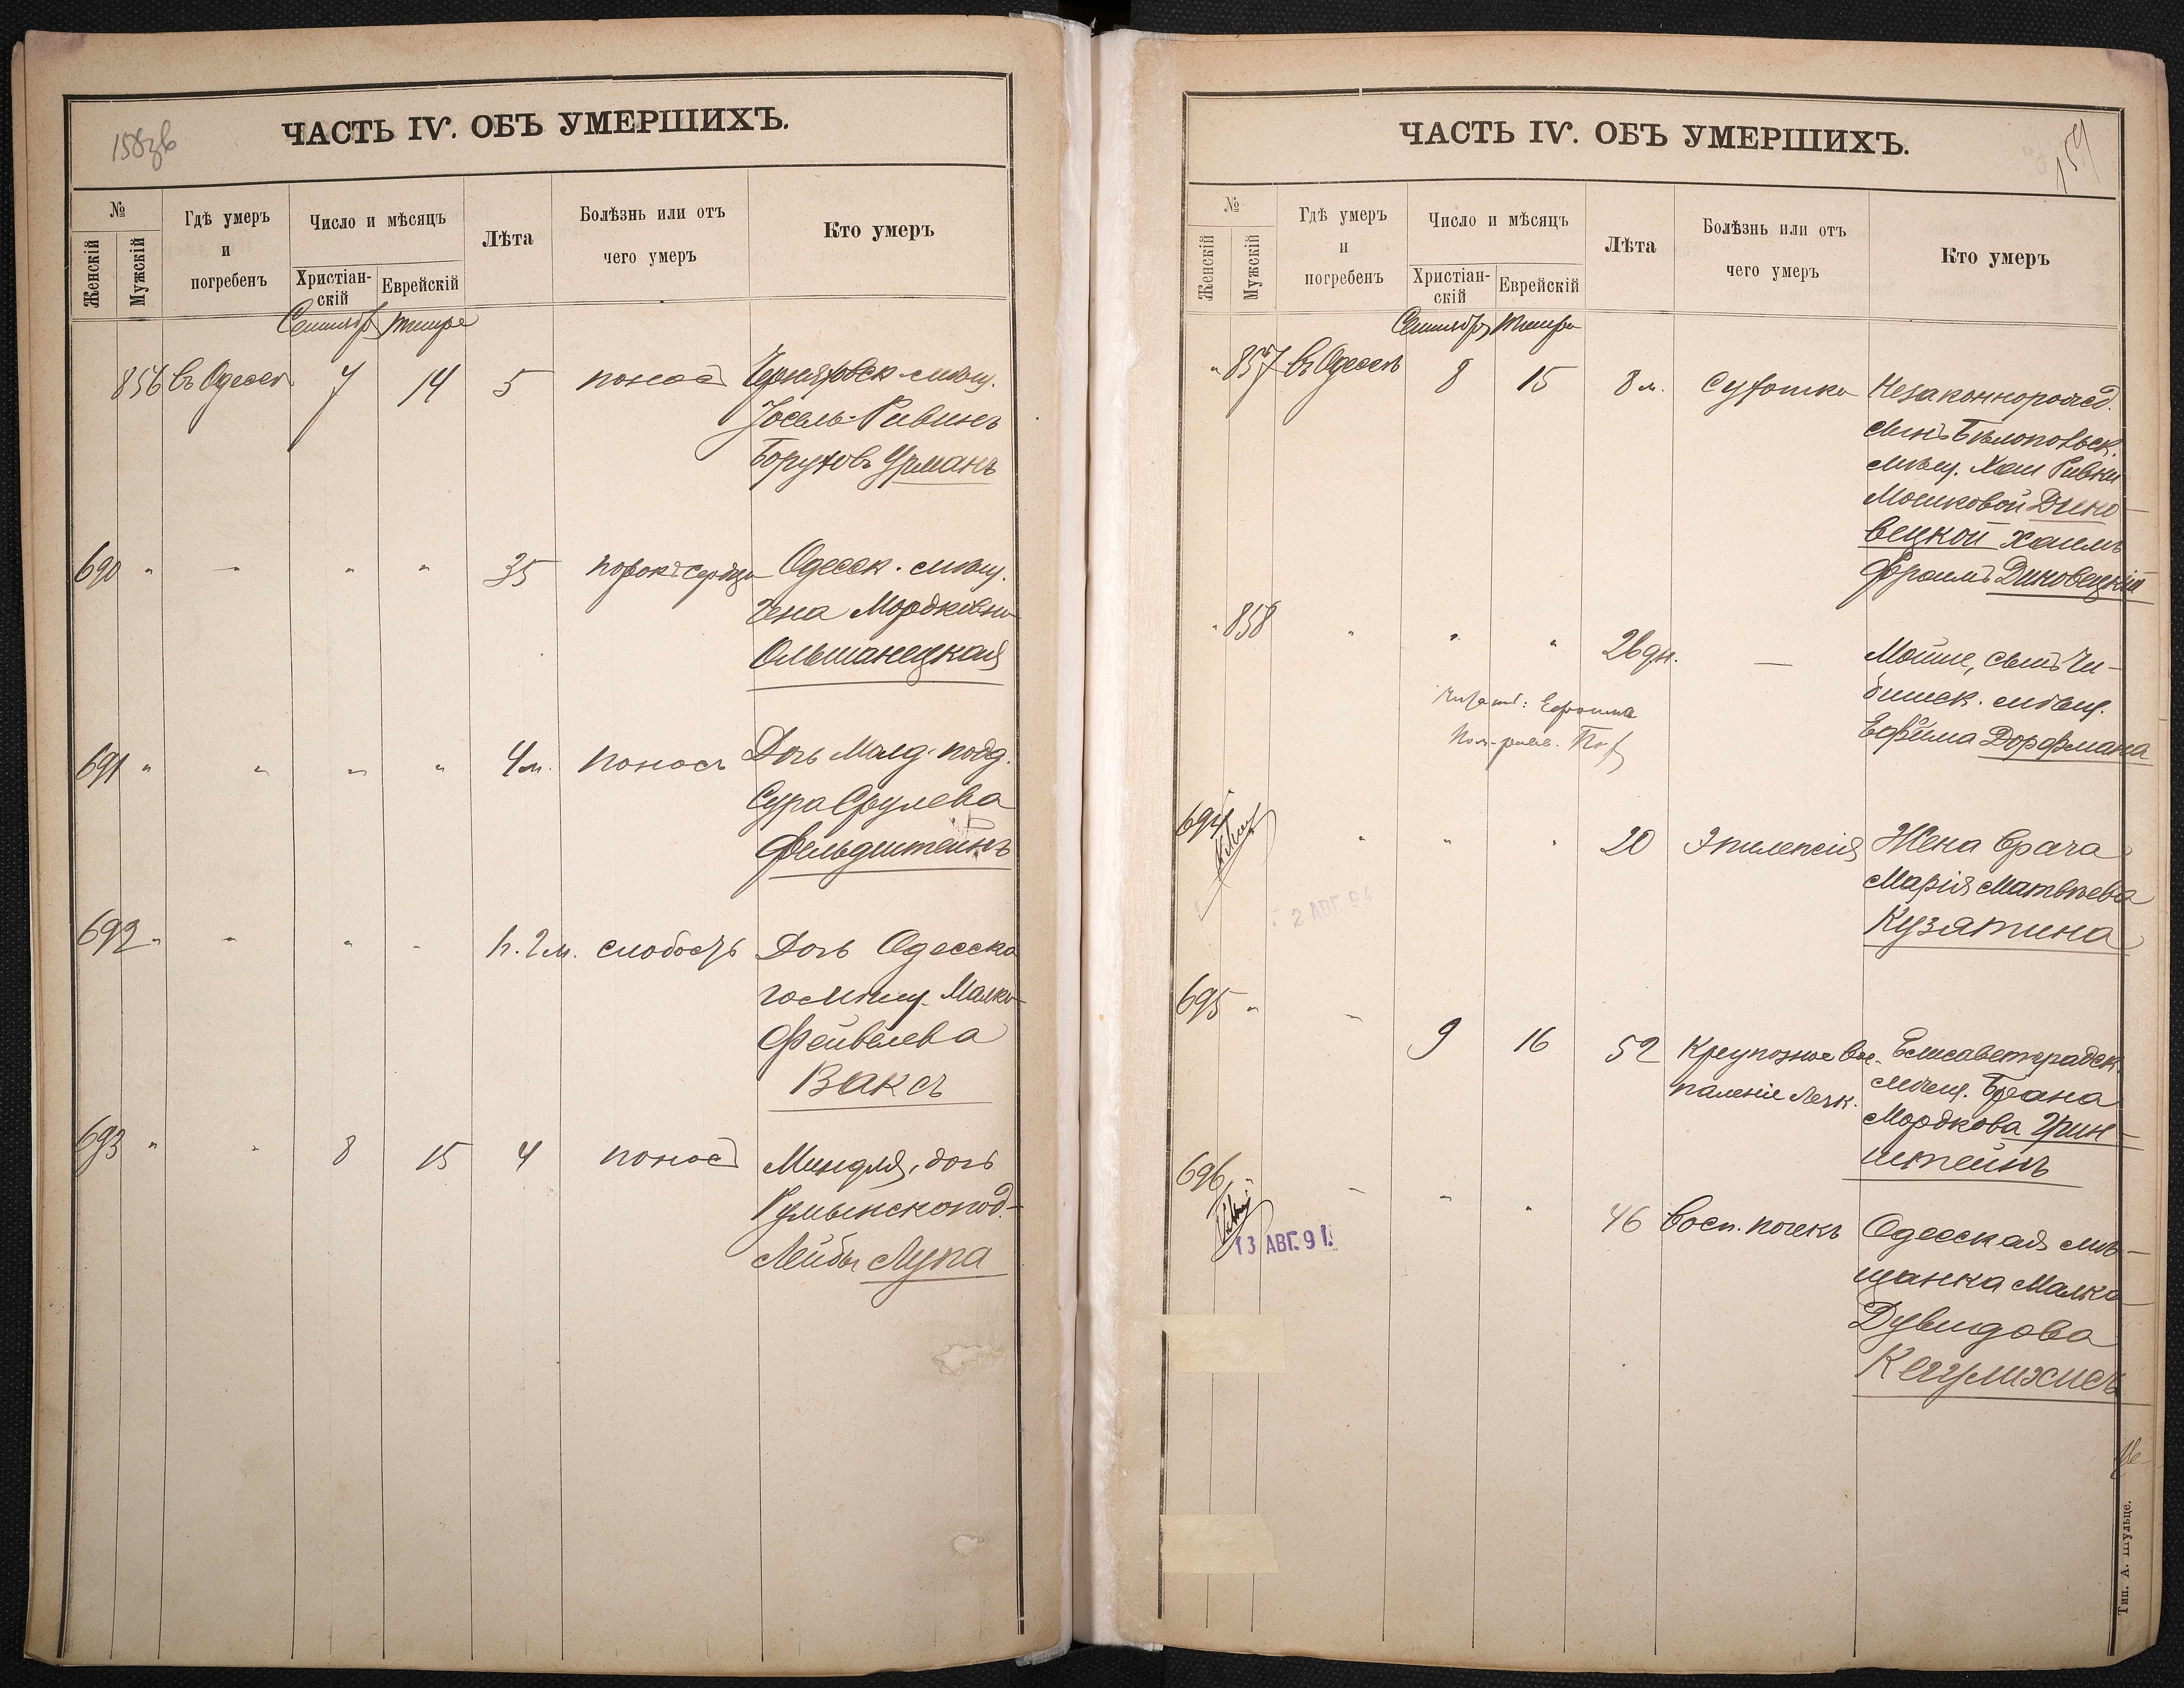 158зв
ЧАСТЬ IV. ОБЪ УМЕРШИХЪ.
№
Женскій
Мужскій
Гдѣ умеръ
и
погребенъ
Число и мѣсяцъ
Христіан-
скій
Еврейскій
Лѣта
Болѣзнь или отъ
чего умеръ
Кто умеръ
Сентябр Тишре
856 въ Одессѣ 7 14 5 поносъ мѣщ.
Іосель-Ривинъ
Боруховъ Урманъ
690 " — " " 35 порокъ сердца Одесск. мѣщ.
Чена Мордковна
Ольшанецкая
691 " " " " 4 м. поносъ Дочь Молд. подд.
Сура Срулева
Фельдштейнъ
692 " " " " 2 м. слабость Дочь Одесска
го мѣщ. Малка
Фейвелева
Ваксъ
693 " " 8 15 4 поносъ Миндля, дочь
Румынскопод-
Лейбы Лупа
ЧАСТЬ IV. ОБЪ УМЕРШИХЪ.
159
№
Женскій
Мужскій
Гдѣ умеръ
и
погребенъ
Число и мѣсяцъ
Христіан-
скій
Еврейскій
Лѣта
Болѣзнь или отъ
чего умеръ
Кто умеръ
Сентябр Тишре
" 857 въ Одессѣ 8 15 8 м. Сухотка Незаконнорожд.
сынъ Бѣлопольск.
мѣщ. Хаи Ривки
Мошковой Дино-
вецкой Хаимъ
Фроимъ Диновецкій
" 858 " " " 26 дн. — Мойше, сынъ Чи-
бишск. мѣщ.
Ефима Дорфмана
694 " " " 20 Эпилепсія Жена врача
Марія Матвѣева
Кузятина
2 АВГ. 94
695 " — 9 16 52 Крупозное вос-
паленіе легк.
Елисаветградск.
мѣщ. Брана
Мордкова Грин-
штейнъ
696 " — " " 46 Восп. почекъ Одесская мѣ-
щанка Малка
Дувидова
13 АВГ. 91.
Тип. А. Шульце.